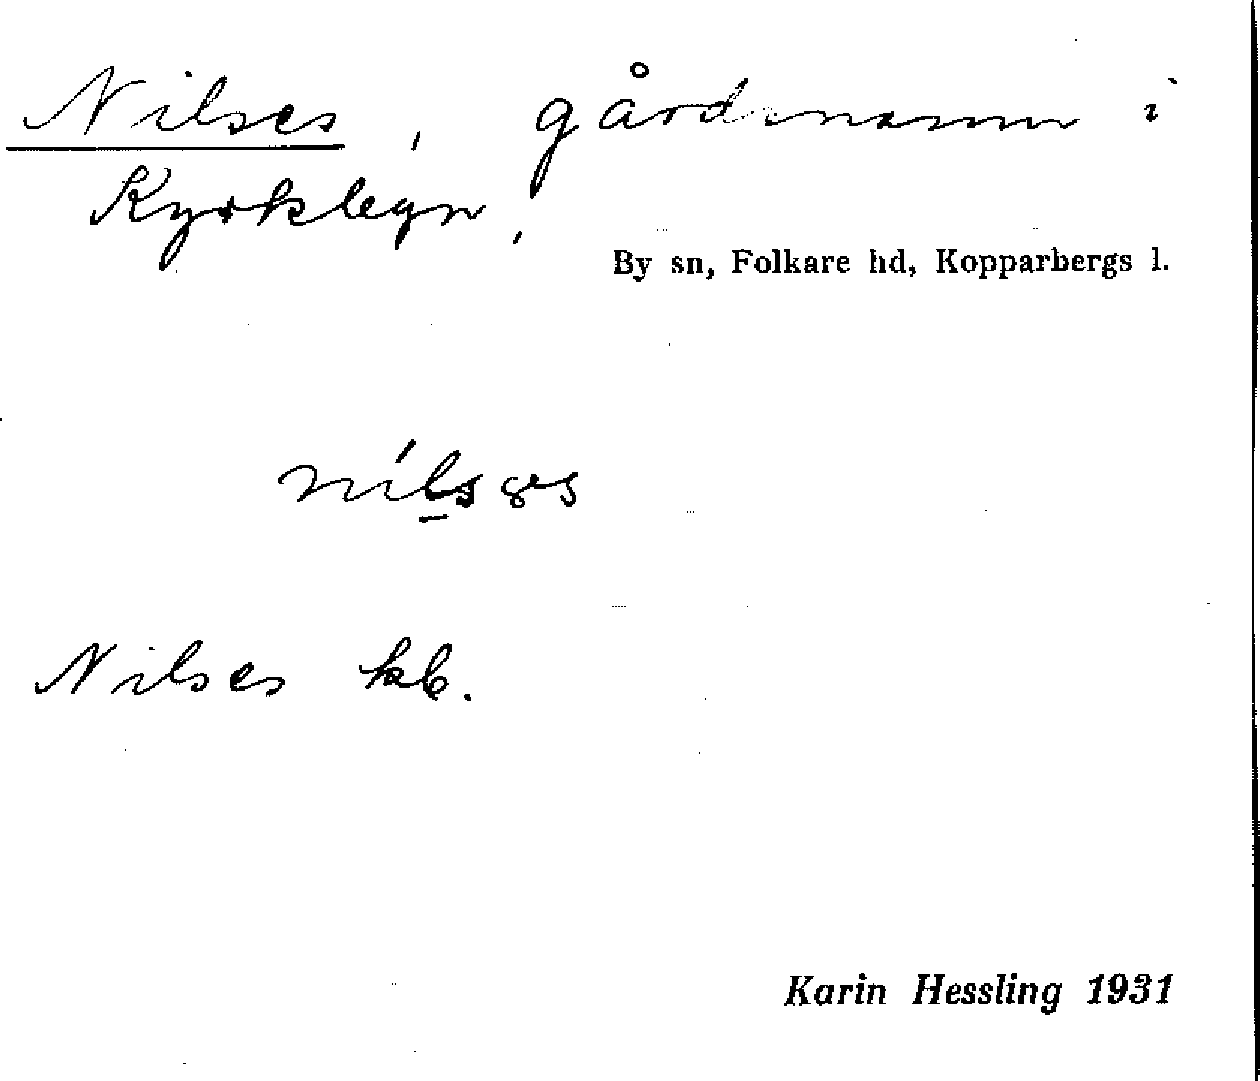 Nilses, gårdsnamn i
Kyrkbyn,
By sn, Folkare hd, Kopparbergs l.
Nilses kb.
Karin Hessling 1931